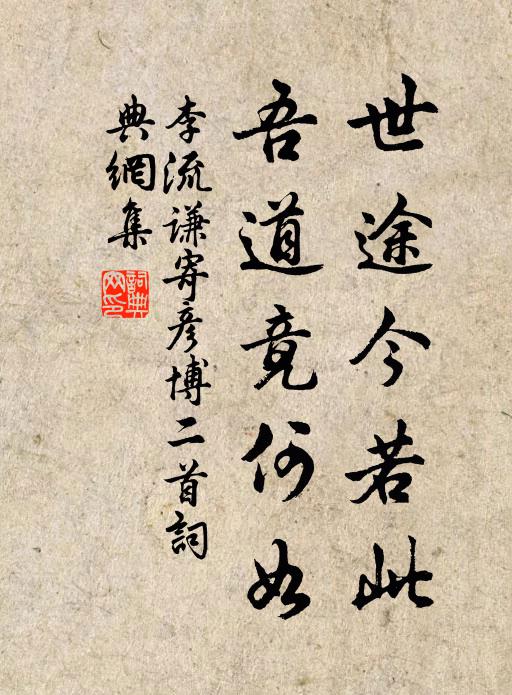 世途今若此
吾道竟何如
李流谦寄彦博二首詞
典網集
詞典网印